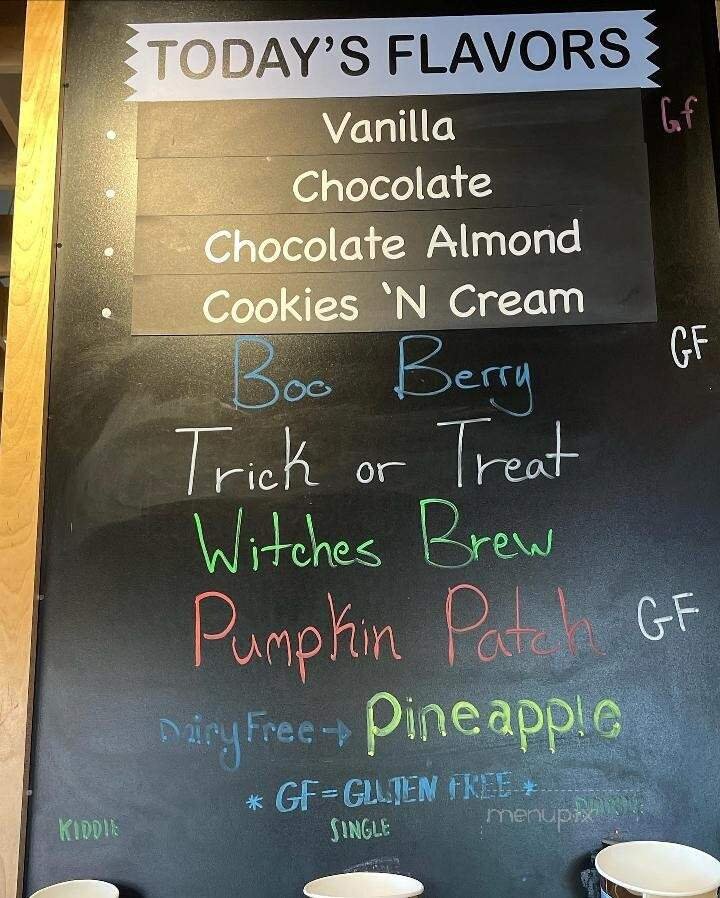 TODAY'S FLAVORS
Vanilla Gf
Chocolate
Chocolate Almond
Cookies 'N Cream
Boo Berry GF
Trick or Treat
Witches Brew
Pumpkin Patch GF
Dairy Free → Pineapple
* GF = GLUTEN FREE *
menupix
KIDDIE SINGLE